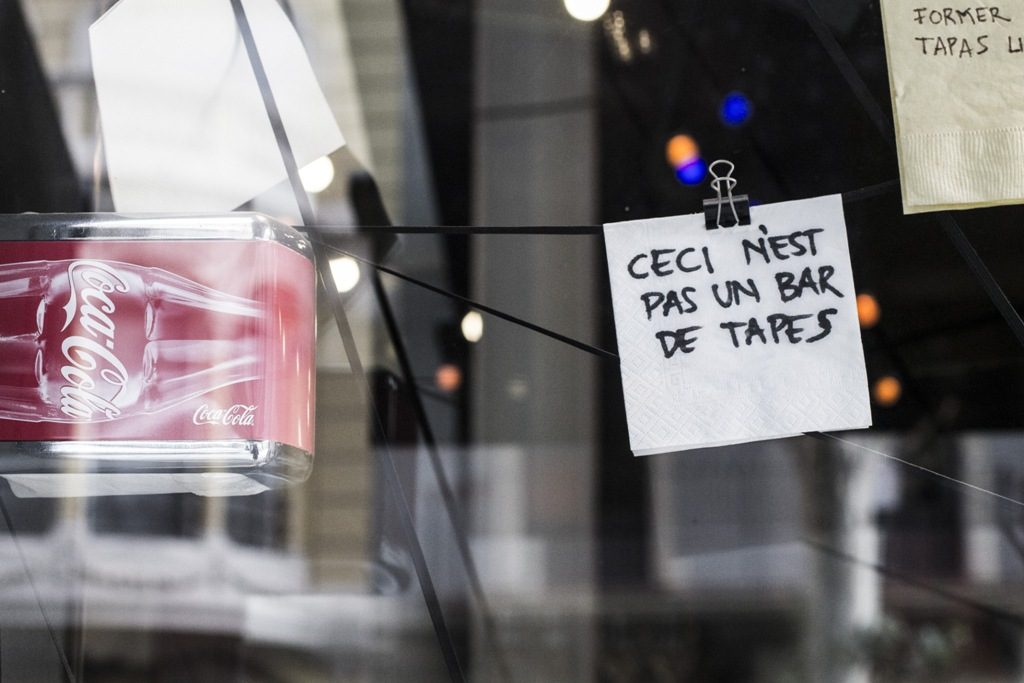 FORMER
TAPAS
CECI N'EST
PAS UN BAR
DE TAPES
Coca-Cola
Coca-Cola